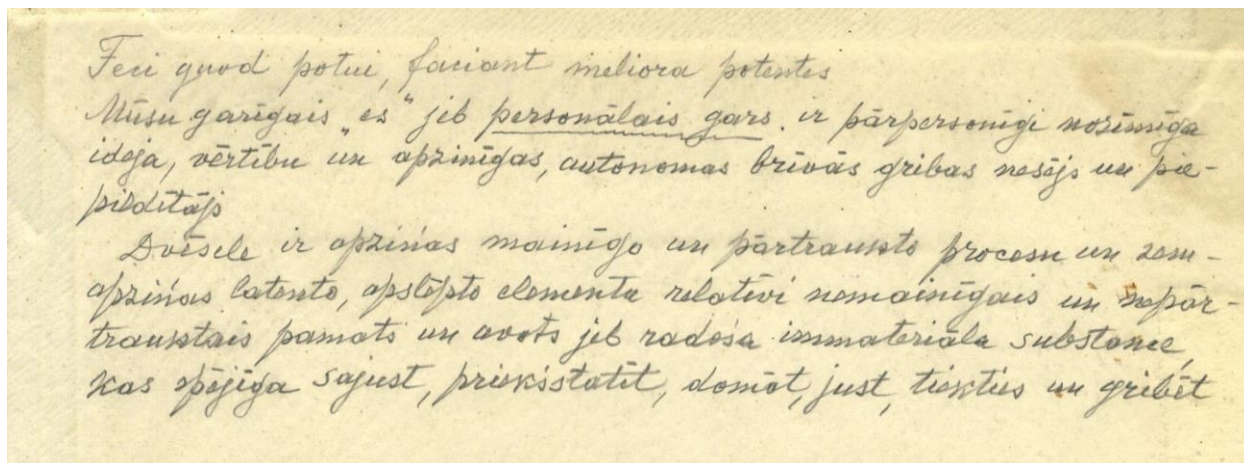 Feci quod potui, faciant meliora potentes
Mūsu garīgais „es" jeb personālais gars ir pārpersonīgi nozīmīga
ideja, vērtību un apzinīgas, autonomas brīvās gribas nesējs un pie-
pildītājs
Dvēsele ir apziņas mainīgo un pārtraukto procesu un zem-
apziņas latento, apslēpto elementu relatīvi nemainīgais un nepār-
trauktais pamats un avots jeb radoša immateriāla substance,
kas spējīga sajust, priekšstatīt, domāt, just, tiekties un gribēt